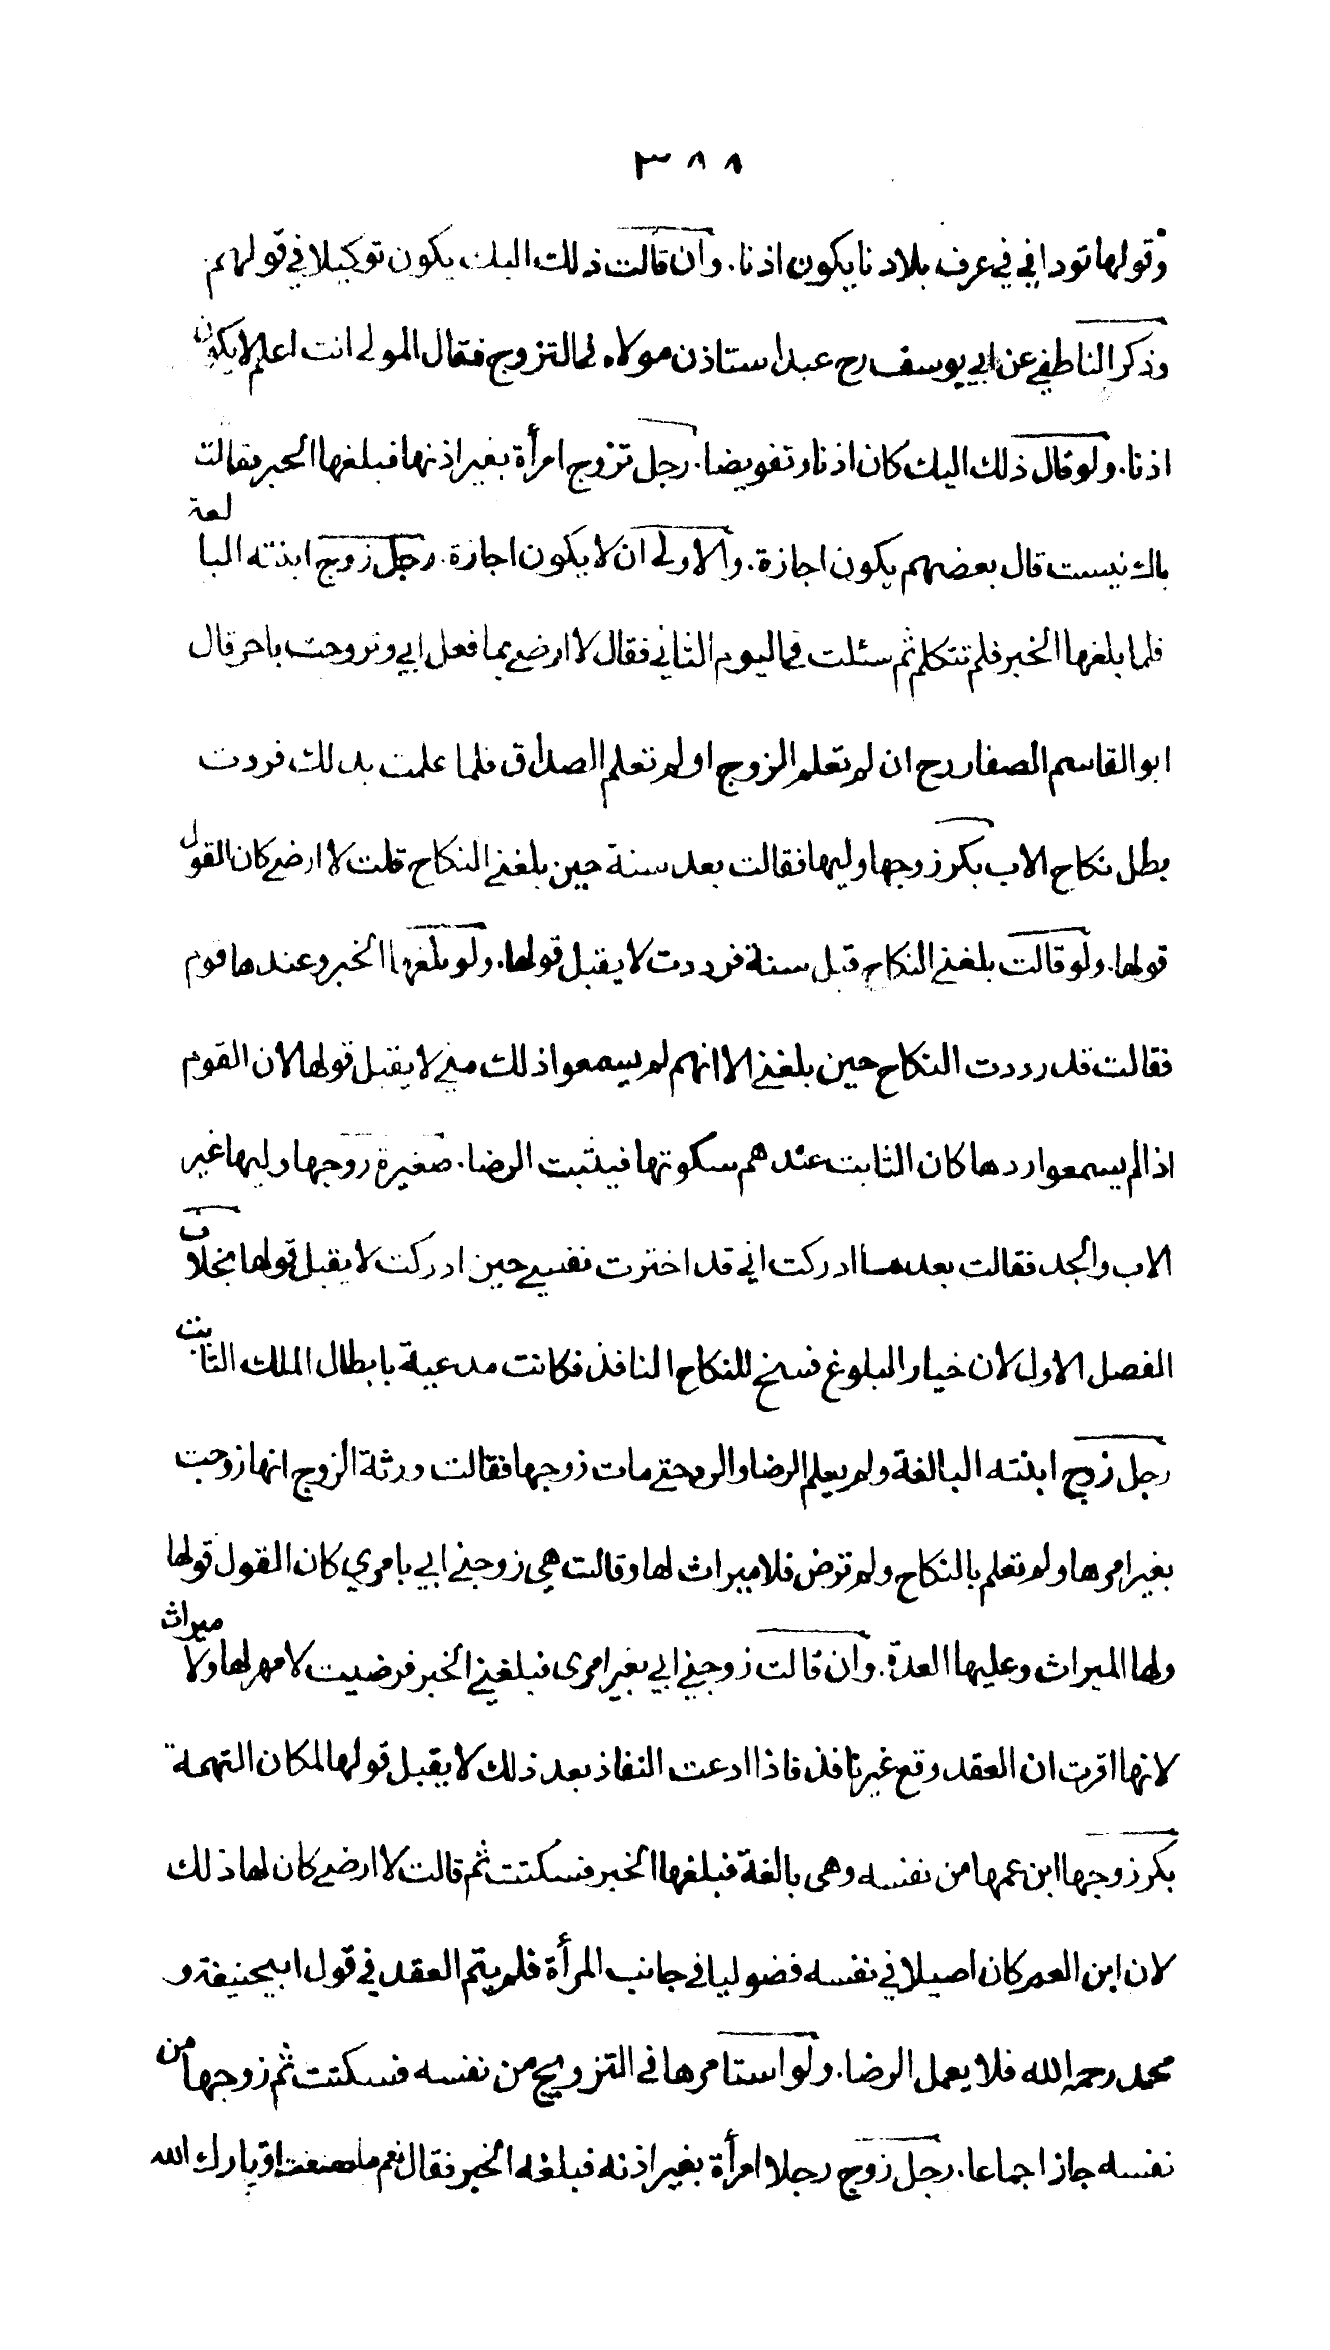 ٣٨٨
وقولها تو داني في عرف بلادنا يكون اذنا. وان قالت ذلك اليك يكون توكيلا في قولهم
وذكر الناطفي عن ابي يوسف رح عبد استاذن مولاه في التزوج فقال المولى انت اعلم لا يكون
اذنا. ولو قال ذلك اليك كان اذنا وتفويضا. رجل تزوج امرأة بغير اذنها فبلغها الخبر فقالت
باك نيست قال بعضهم يكون اجازة. والاولى ان لا يكون اجازة. رجل زوج ابنته البالغة
فلما بلغها الخبر فلم تتكلم ثم سئلت في اليوم الثاني فقال لا ارضى بما فعل ابي وتزوجت باخر قال
ابو القاسم الصفار رح ان لم تعلم الزوج او لم تعلم الصداق فلما علمت بذلك فردت
بطل نكاح الاب بكر زوجها وليها فقالت بعد سنة حين بلغني النكاح قلت لا ارضى كان القول
قولها. ولو قالت بلغني النكاح قبل سنة فرددت لا يقبل قولها. ولو بلغها الخبر وعندها قوم
فقالت قد رددت النكاح حين بلغني الا انهم لم يسمعوا ذلك مني لا يقبل قولها لان القوم
اذا لم يسمعوا ردها كان الثابت عندهم سكوتها فيثبت الرضا. صغيرة زوجها وليها غير
الاب والجد فقالت بعد ما ادركت اني قد اخترت نفسي حين ادركت لا يقبل قولها بخلاف
الفصل الاول لان خيار البلوغ فسخ للنكاح النافذ فكانت مدعية بابطال الملك الثابت
رجل زوج ابنته البالغة ولم يعلم الرضا والرد حتى مات زوجها فقالت ورثة الزوج انها زوجت
بغير امرها ولم تعلم بالنكاح ولم ترض فلا ميراث لها وقالت هي زوجني ابي بامري كان القول قولها
ولها الميراث وعليها العدة. وان قالت زوجني ابي بغير امرى فبلغني الخبر فرضيت لا مهر لها ولا ميراث
لانها اقرت ان العقد وقع غير نافذ فاذا ادعت النفاذ بعد ذلك لا يقبل قولها لمكان التهمة
بكر زوجها ابن عمها من نفسه وهى بالغة فبلغها الخبر فسكتت ثم قالت لا ارضى كان لها ذلك
لان ابن العم كان اصيلا في نفسه فضوليا في جانب المرأة فلم يتم العقد في قول ابيحنيفة و
محمد رحمه الله فلا يعمل الرضا. ولو استامرها في التزويج من نفسه فسكتت ثم زوجها من
نفسه جاز اجماعا. رجل زوج رجلا امرأة بغير اذنه فبلغه الخبر فقال نعم ما صنعت او بارك الله